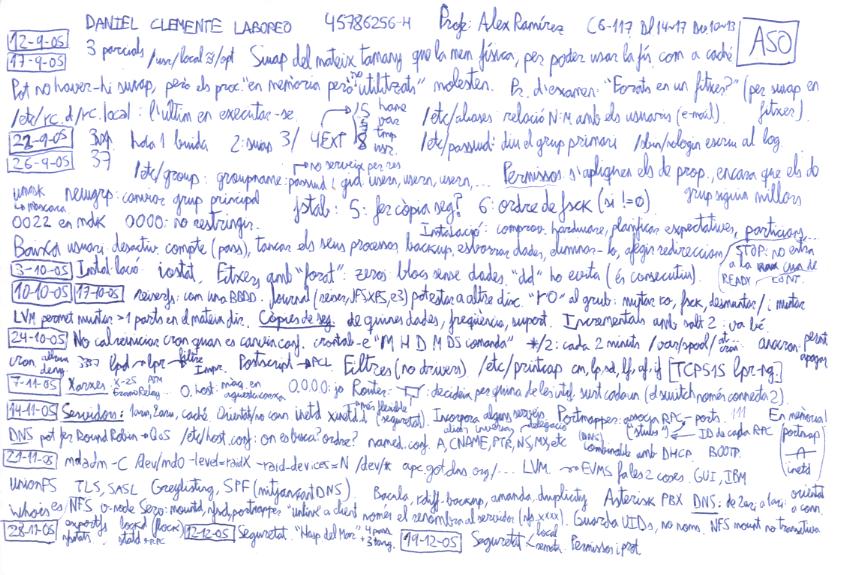 DANIEL CLEMENTE LABOREO 45786256-H Profe: Alex Ramírez C6-117 Dl 14-17 Dm 10-13 ASO
12-9-05
17-9-05 3 parcials /usr/local → /opt Swap del mateix tamany que la mem física, per poder usar la fís. com a caché
Pot no haver-hi swap, però els proc. "en memòria però no utilitzats" molesten. Pr. d'examen: "Forats en un fitxer?" (per swap en fitxer).
/etc/rc.d/rc.local: l'últim en executar-se /etc/aliases relació N:M amb els usuaris (e-mail).
22-9-05 hda 1 buida 2: swap 3/ 4EXT 5 home var tmp 8 usr. /etc/passwd: diu el grup primari /sbin/nologin escriu al log
26-9-05 37 /etc/group: groupname: passwd: gid: usern, usern, usern,... no serveix per res Permissos s'apliquen els de prop., encara que els do grup siguin millors
umask la màscara newgrp: canviar grup principal fstab: 5: fer còpia seg? 6: ordre de fsck (si !=0)
0022 en mdk 0000: no restringir. Instal·lació: comprovar hardware, planificar expectatives, particions...
Baixa usuari: desactiv. compte (pass), tancar els seus processos, backup, esborrar dades, eliminar-lo, afegir redireccion/ STOP: no entra a la cua de READY CONT.
3-10-05 Instal·lació iostat. Fitxers amb "forat": zeros blocs sense dades. "dd" ho evita (és consecutiu).
10-10-05 17-10-05 reiserfs: com una BBDD. Journal (reiser, JFS, XFS, e3) pot estar a altre disc. "ro" al grub: muntar ro, fsck, desmuntar i muntar
LVM permet muntar >1 parts en el mateix dir. Còpies de seg. de quines dades, freqüència, suport. Incrementals amb salt 2: va bé
24-10-05 No cal reiniciar cron quan es canvia conf. crontab -e "M H D M DS comanda" */2: cada 2 minuts /var/spool/ anacron: pesant apagar
cron allow deny lpd → lpr → filtre → Impr. Postscript → PCL Filtres (no drivers) /etc/printcap cm, lp, sd, lf, af, if [TCP515 lpr-ng.]
7-11-05 Xarxes X-25 ATM Frame Relay 0.host: màq. en aquesta xarxa 0.0.0.0: jo Router: decideix per quina de les intf. surt cada un (el switch només connecta 2).
14-11-05 Servidors: 1ari, 2ari, caché Orientat/no conn inetd xinetd (més flexible, seguretat). Incorpora alguns serveis. Portmapper: associa RPC→ports. 111 En memòria!
DNS pot fer Round Robin → QoS /etc/host.conf: on es busca? ordre? named.conf. A, CNAME, PTR, NS, MX, etc Combinable amb DHCP. BOOTP. ID de cada RPC portmap inetd
21-11-05 mdadm -C /dev/md0 -level=raidX -raid-devices=N /dev/* apc.gotdns.org/... LVM → EVMS fa les 2 coses. GUI, IBM
UnionFS TLS, SASL Greylisting, SPF (mitjançant DNS) Bacula, rdiff-backup, amanda, duplicity Asterisk PBX DNS: de 2ari a 1ari: orientat a conn.
whois es NFS o-node Sezo: mountd, nfsd, portmapper "unlink a client només el renombra al servidor (nfs.xxxx). Guarda UIDs, no noms. NFS mount no transitiva
28-11-05 exportfs nfsstats lockd (flock) statd +RPC 12-12-05 Seguretat. "Nasp del Mor" 19-12-05 Seguretat local remota. Permissos i prot.